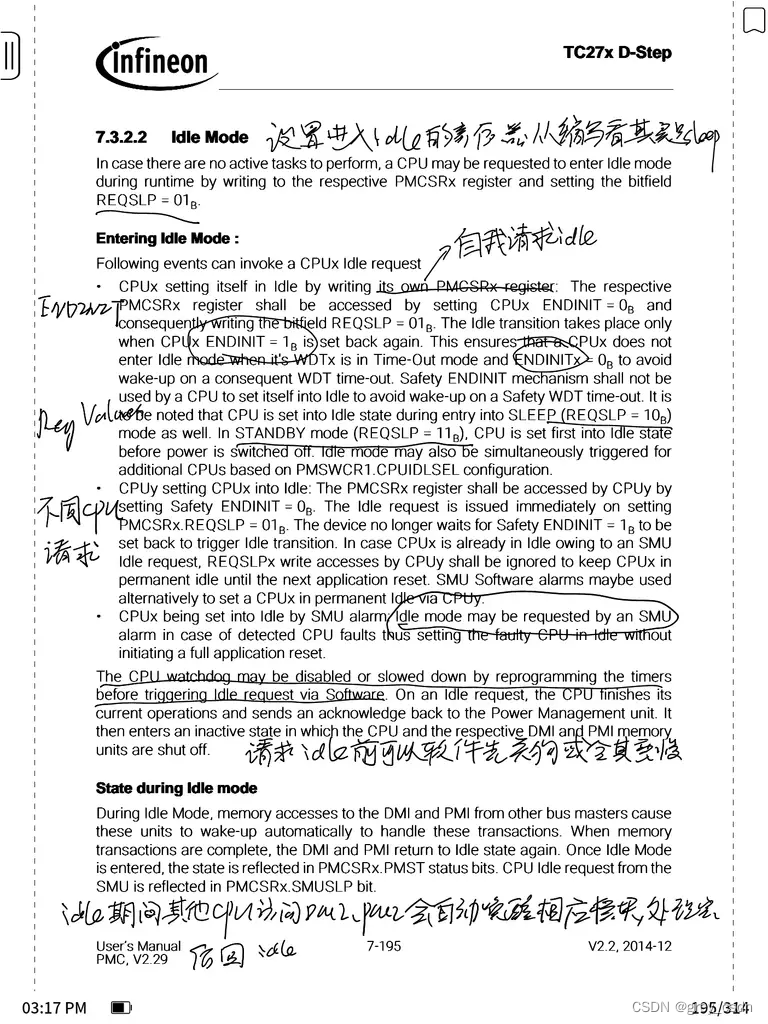 infineon
TC27x D-Step
7.3.2.2 Idle Mode 设置进入idle的寄存器从缩写看其实是sleep
In case there are no active tasks to perform, a CPU may be requested to enter Idle mode
during runtime by writing to the respective PMCSRx register and setting the bitfield
REQSLP = 01B.
自我请求idle
Entering Idle Mode :
Following events can invoke a CPUx Idle request
• CPUx setting itself in Idle by writing its own PMCSRx register: The respective
ENDINIT
PMCSRx register shall be accessed by setting CPUx ENDINIT = 0B and
consequently writing the bitfield REQSLP = 01B. The Idle transition takes place only
when CPUx ENDINIT = 1B is set back again. This ensures that a CPUx does not
enter Idle mode when it's WDTx is in Time-Out mode and ENDINITx = 0B to avoid
wake-up on a consequent WDT time-out. Safety ENDINIT mechanism shall not be
used by a CPU to set itself into Idle to avoid wake-up on a Safety WDT time-out. It is
Req Values
to be noted that CPU is set into Idle state during entry into SLEEP (REQSLP = 10B)
mode as well. In STANDBY mode (REQSLP = 11B), CPU is set first into Idle state
before power is switched off. Idle mode may also be simultaneously triggered for
additional CPUs based on PMSWCR1.CPUIDLSEL configuration.
• CPUy setting CPUx into Idle: The PMCSRx register shall be accessed by CPUy by
不同CPU
setting Safety ENDINIT = 0B. The Idle request is issued immediately on setting
PMCSRx.REQSLP = 01B. The device no longer waits for Safety ENDINIT = 1B to be
请求
set back to trigger Idle transition. In case CPUx is already in Idle owing to an SMU
Idle request, REQSLPx write accesses by CPUy shall be ignored to keep CPUx in
permanent idle until the next application reset. SMU Software alarms maybe used
alternatively to set a CPUx in permanent Idle via CPUy.
• CPUx being set into Idle by SMU alarm: Idle mode may be requested by an SMU
alarm in case of detected CPU faults thus setting the faulty CPU in Idle without
initiating a full application reset.
The CPU watchdog may be disabled or slowed down by reprogramming the timers
before triggering Idle request via Software. On an Idle request, the CPU finishes its
current operations and sends an acknowledge back to the Power Management unit. It
then enters an inactive state in which the CPU and the respective DMI and PMI memory
units are shut off.
请求idle前可以软件先关狗或令其变慢
State during Idle mode
During Idle Mode, memory accesses to the DMI and PMI from other bus masters cause
these units to wake-up automatically to handle these transactions. When memory
transactions are complete, the DMI and PMI return to Idle state again. Once Idle Mode
is entered, the state is reflected in PMCSRx.PMST status bits. CPU Idle request from the
SMU is reflected in PMCSRx.SMUSLP bit.
idle期间其他CPU访问DMI、PMI会自动唤醒相应模块,处理完
后回idle
User's Manual 7-195 V2.2, 2014-12
PMC, V2.29
03:17 PM 195/314